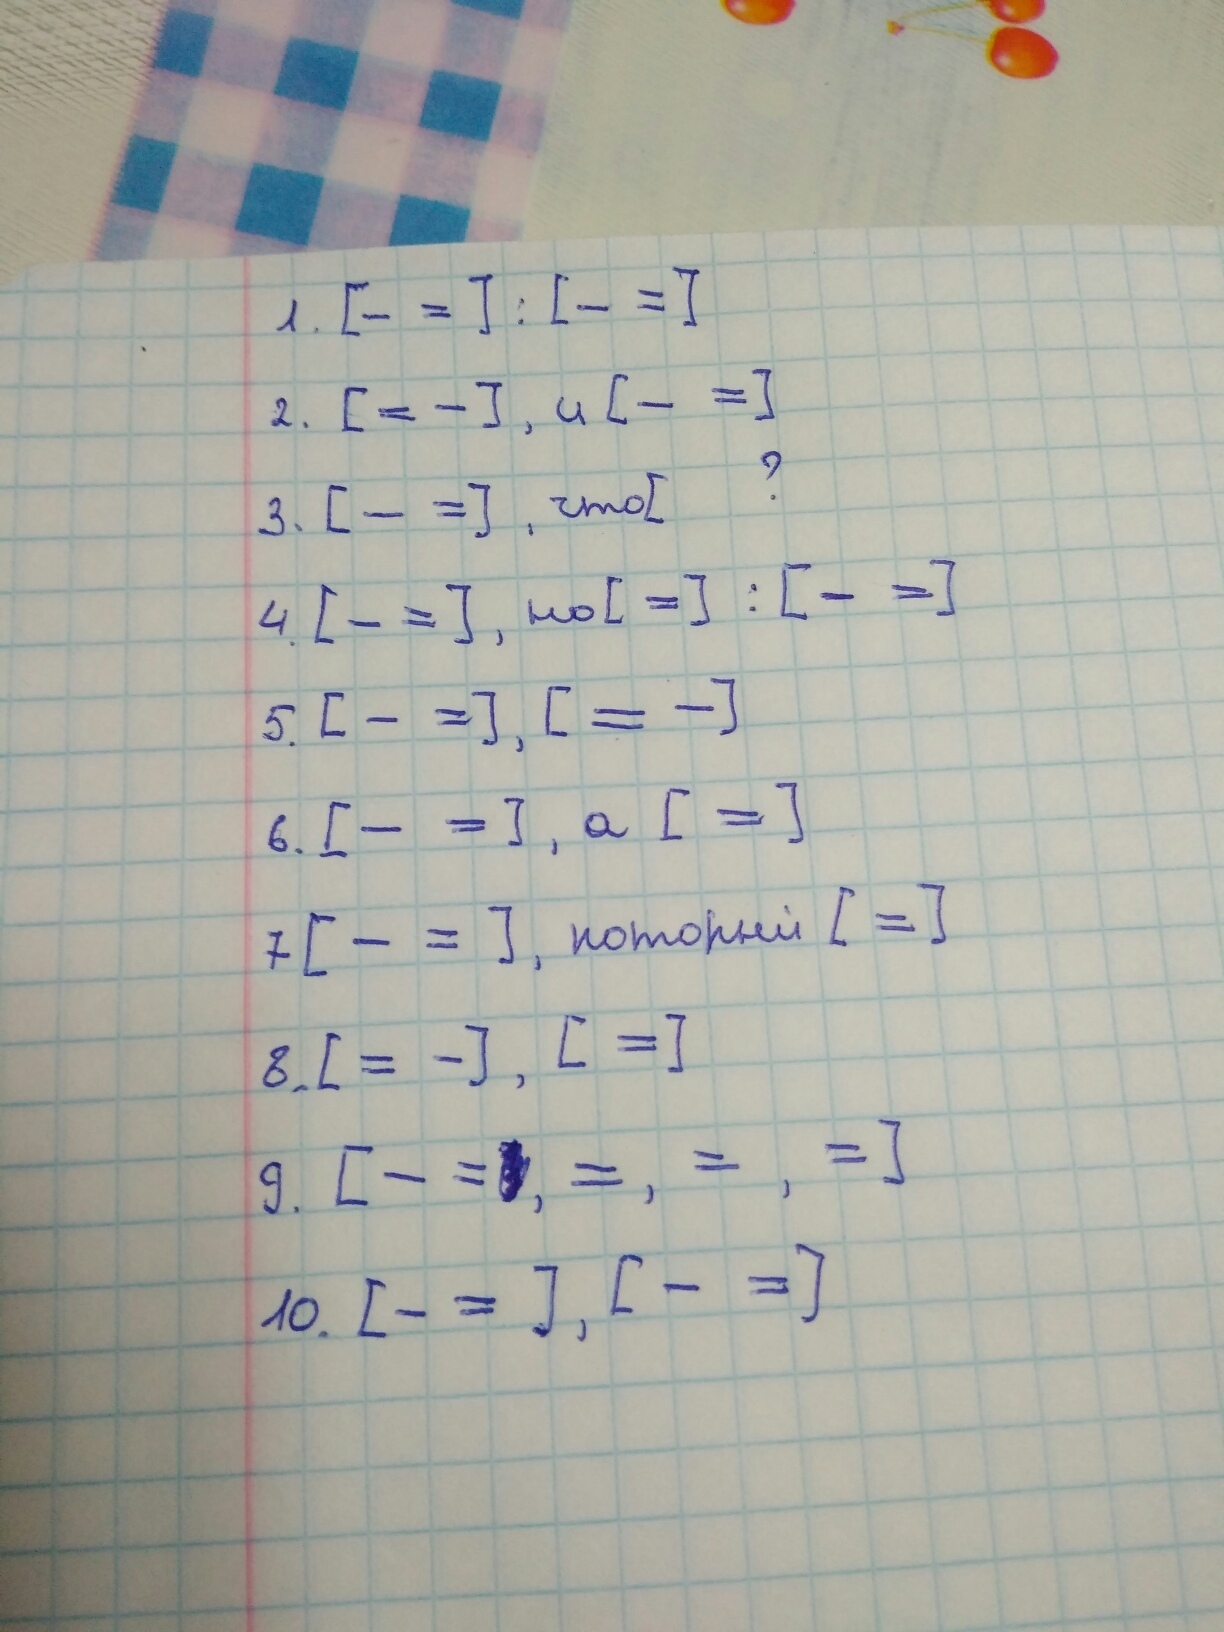 1. [– =] : [– =]
2. [= –], и [– =]
3. [– =], что[ ?
4. [– =], но [=] : [– =]
5. [– =], [= –]
6. [– =], а [=]
7 [– =], который [=]
8. [= –], [=]
9. [– =, =, =, =]
10. [– =], [– =]